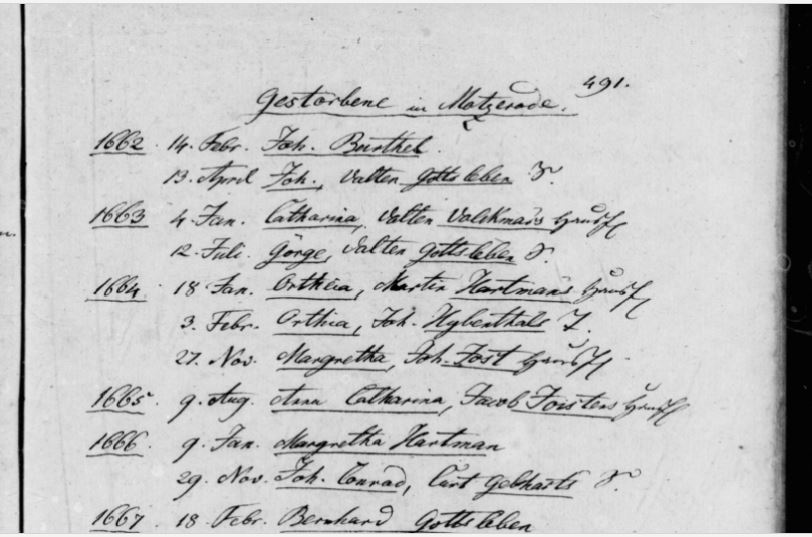 491.
Gestorbene in Motzerode.
1662. 14. Febr. Joh. Burthel.
13. April Joh., Valten Gottsleben S.
1663 4. Jan. Catharina, Valten Valckmars Hausf
12. Juli Görge, Valten Gottsleben S.
1664. 18 Jan. Orthia, Martin Hartmans Hausf
3. Febr. Orthia, Joh. Hybenthals T.
27. Nov. Margretha, Joh. Jost Hausf
1665. 9. Aug. Anna Catharina, Jacob Hausf
1666. 9. Jan. Margretha Hartman
29. Nov. Joh. Conrad, Curt Gebharts S.
1667. 18. Febr. Bernhard Gottsleben